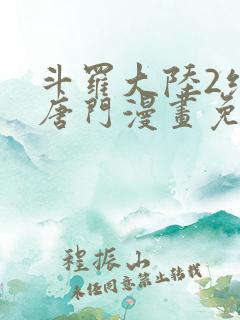 斗羅大陸2
唐門漫畫免
程振山
未任同意禁止转载